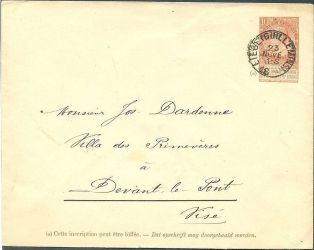 10
23
NOVE
(a)
Monsieur Jos Dardenne
Villa des Primevères
à
Devant-le-Pont
Visé
(a) Cette inscription peut être biffée. — Dit opschrift mag doorgehaald worden.